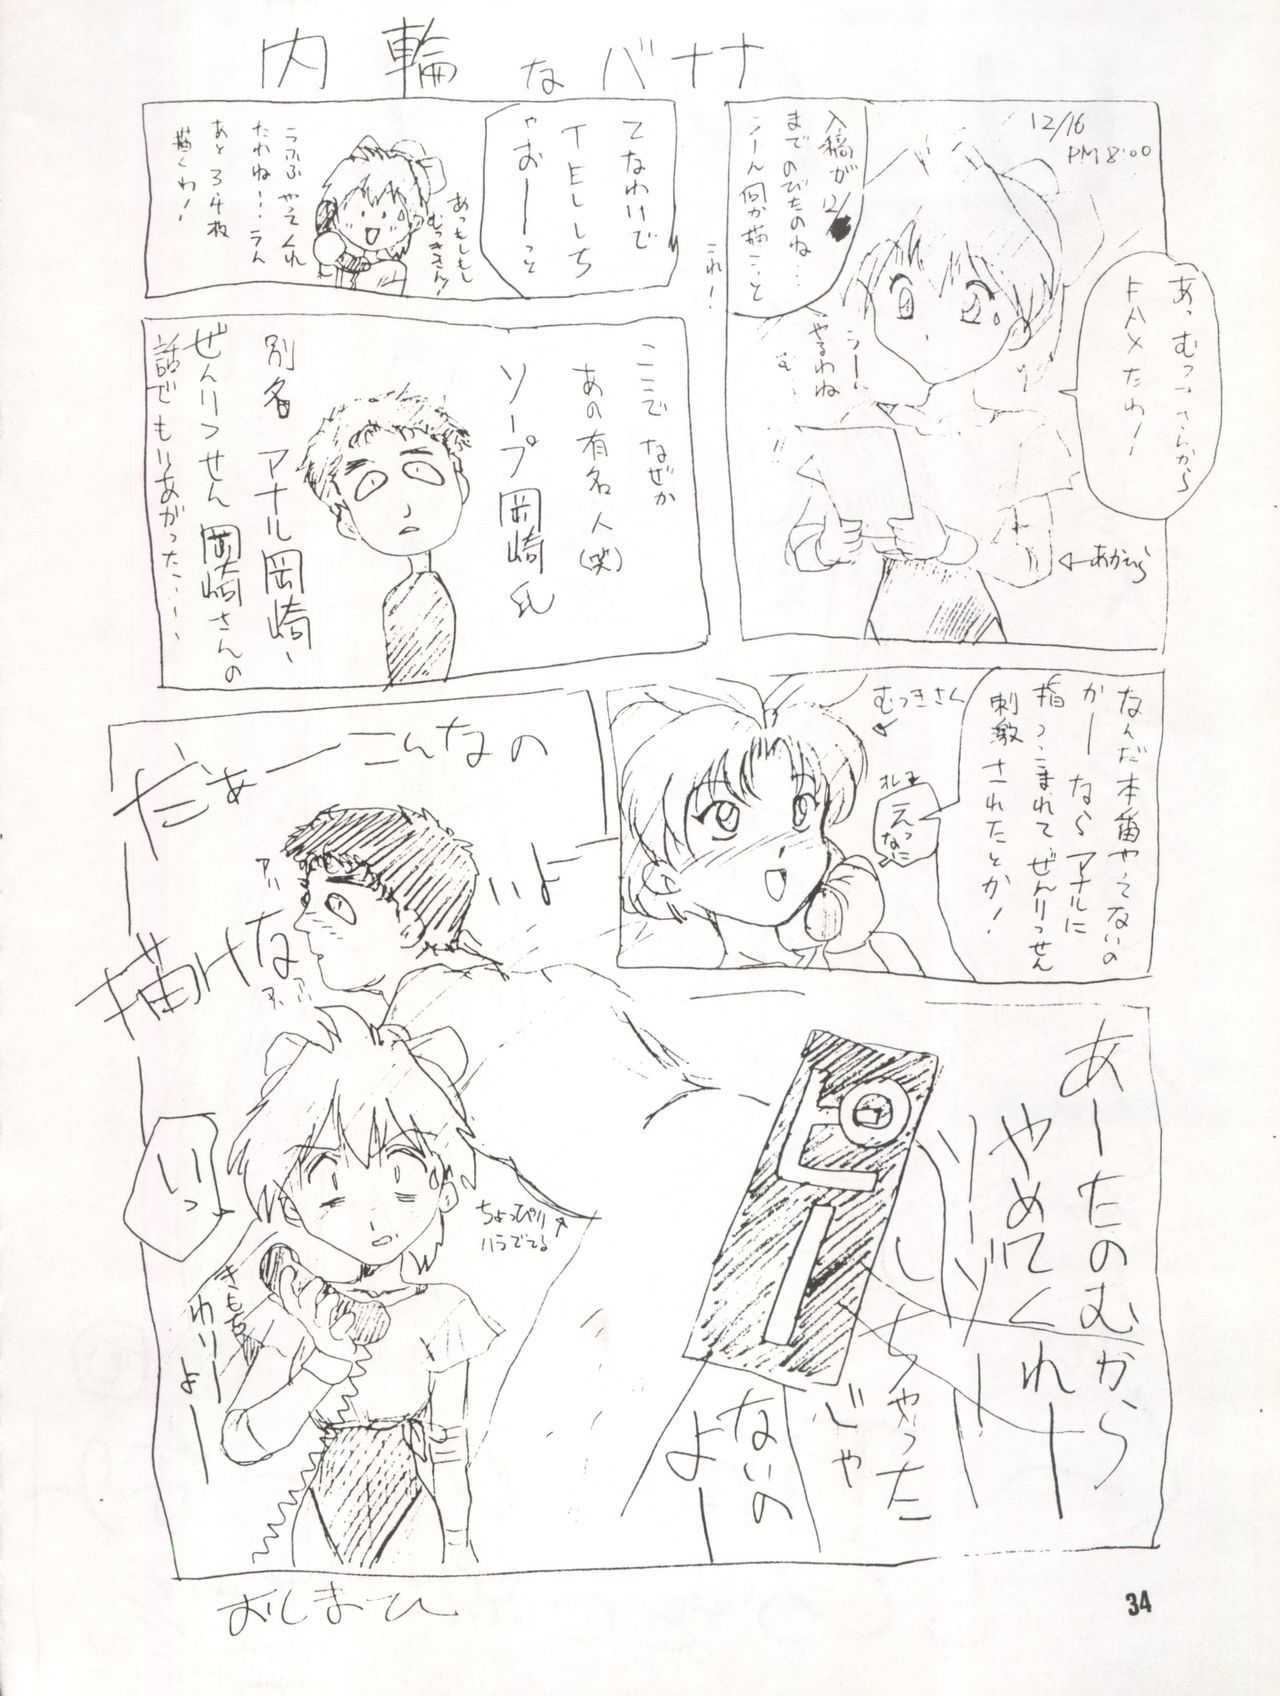 内輪なバナナ
12/16
PM8:00
あっむつきさんから
FAXだわー
入稿が12/
までのびたのね…
うーん何か描こっと
うー
やるわね
む…
これ!
←あかほら
てなわけで
TELしち
ゃおーっと
あっもしもし
むつきさん!
うふふやってくれ
たわね…うん
あと3 4枚
描くわー!
ここでなぜか
あの有名人(笑)
ソープ岡崎氏
別名アナル岡崎、
ぜんりつせん岡崎さんの
話でもりあがった…
なんだ本番やってないの
かーならアナルに
指つっこまれてぜんりっせん
刺激されたとか!
むつきさく
オレに
えっ
なに
だぁーこんなの
いよー
描けな
アハ
アハ
アハ
いっ
きもち
わりーよー
ちょっぴり
ハラでてる
ピー
あーたのむから
やめてくれー
しゃ
ないの
よー
おしまひ
34